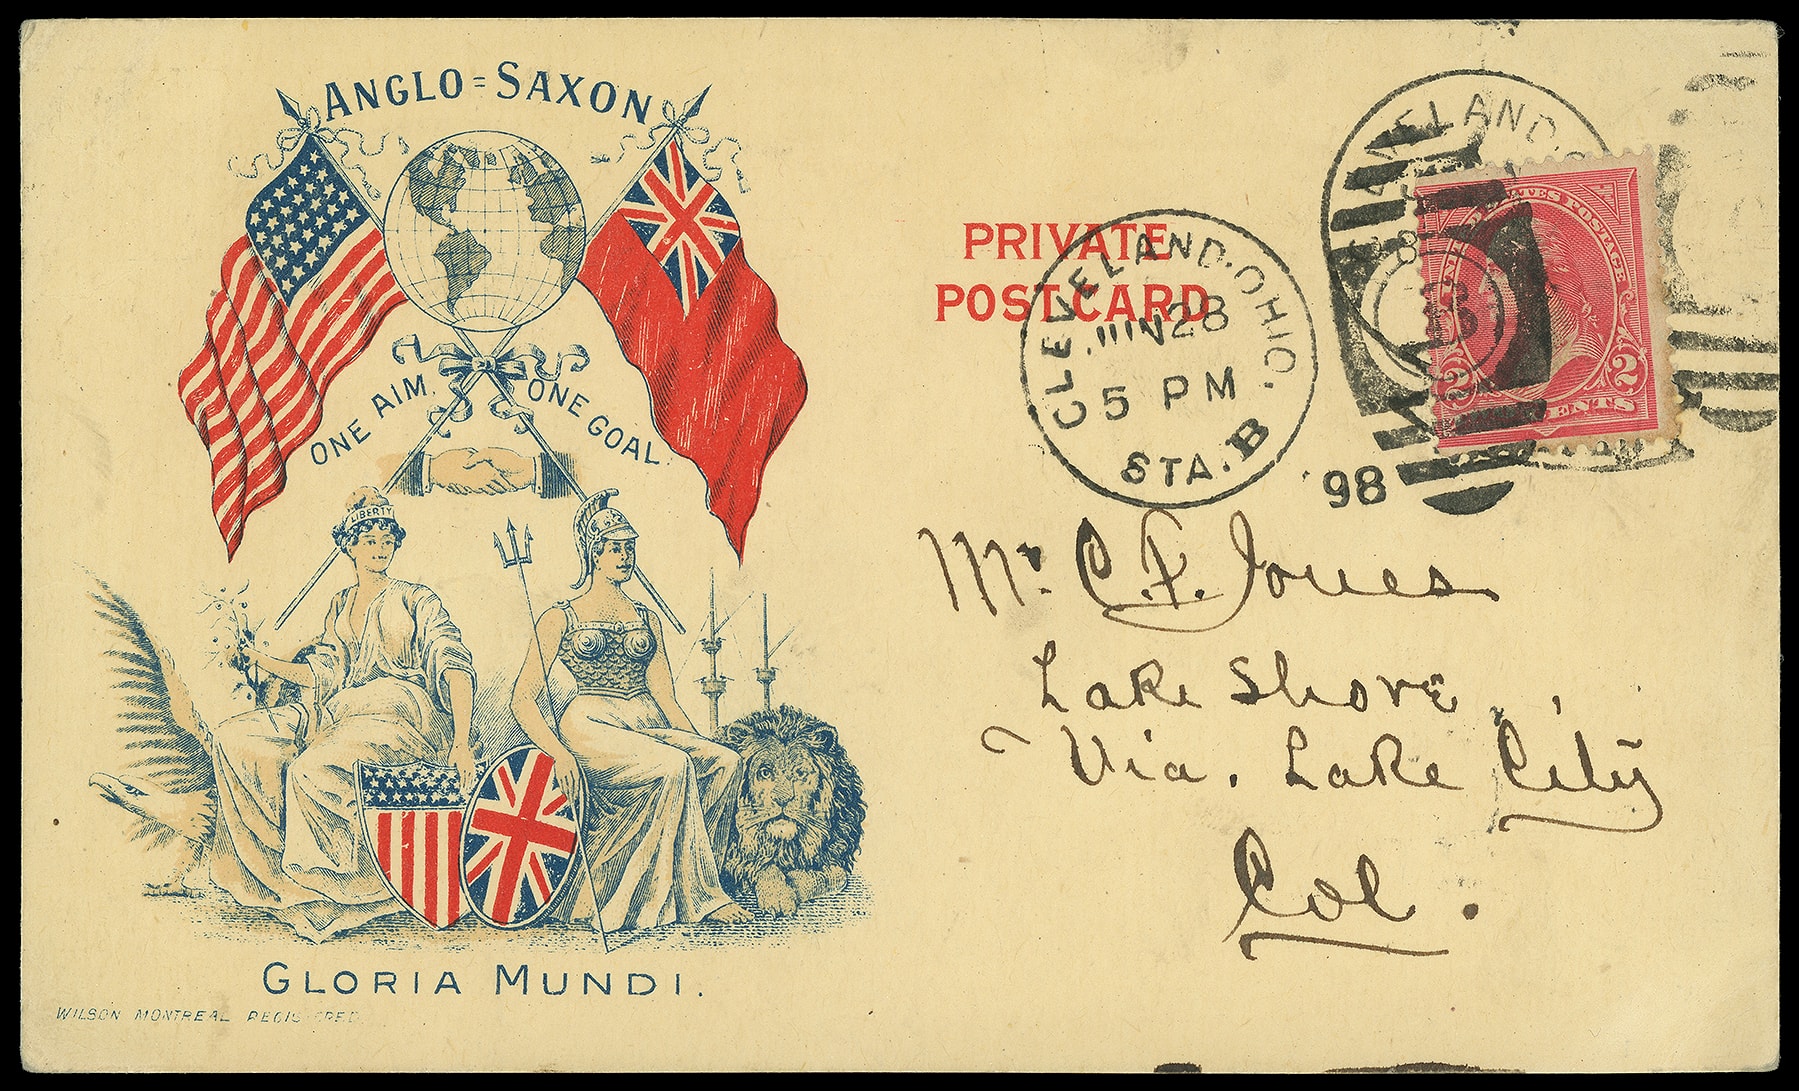 ANGLO=SAXON
ONE AIM ONE GOAL.
LIBERTY
GLORIA MUNDI.
WILSON MONTREAL REGISTERED
PRIVATE
POSTCARD
CLEVELAND·OHIO.
JUN 28
5 PM
STA. B
'98
CLEVELAND.
STATES POSTAGE
2 CENTS 2
Mr. C. F. Jones
Lake Shore,
Via. Lake City
Col.